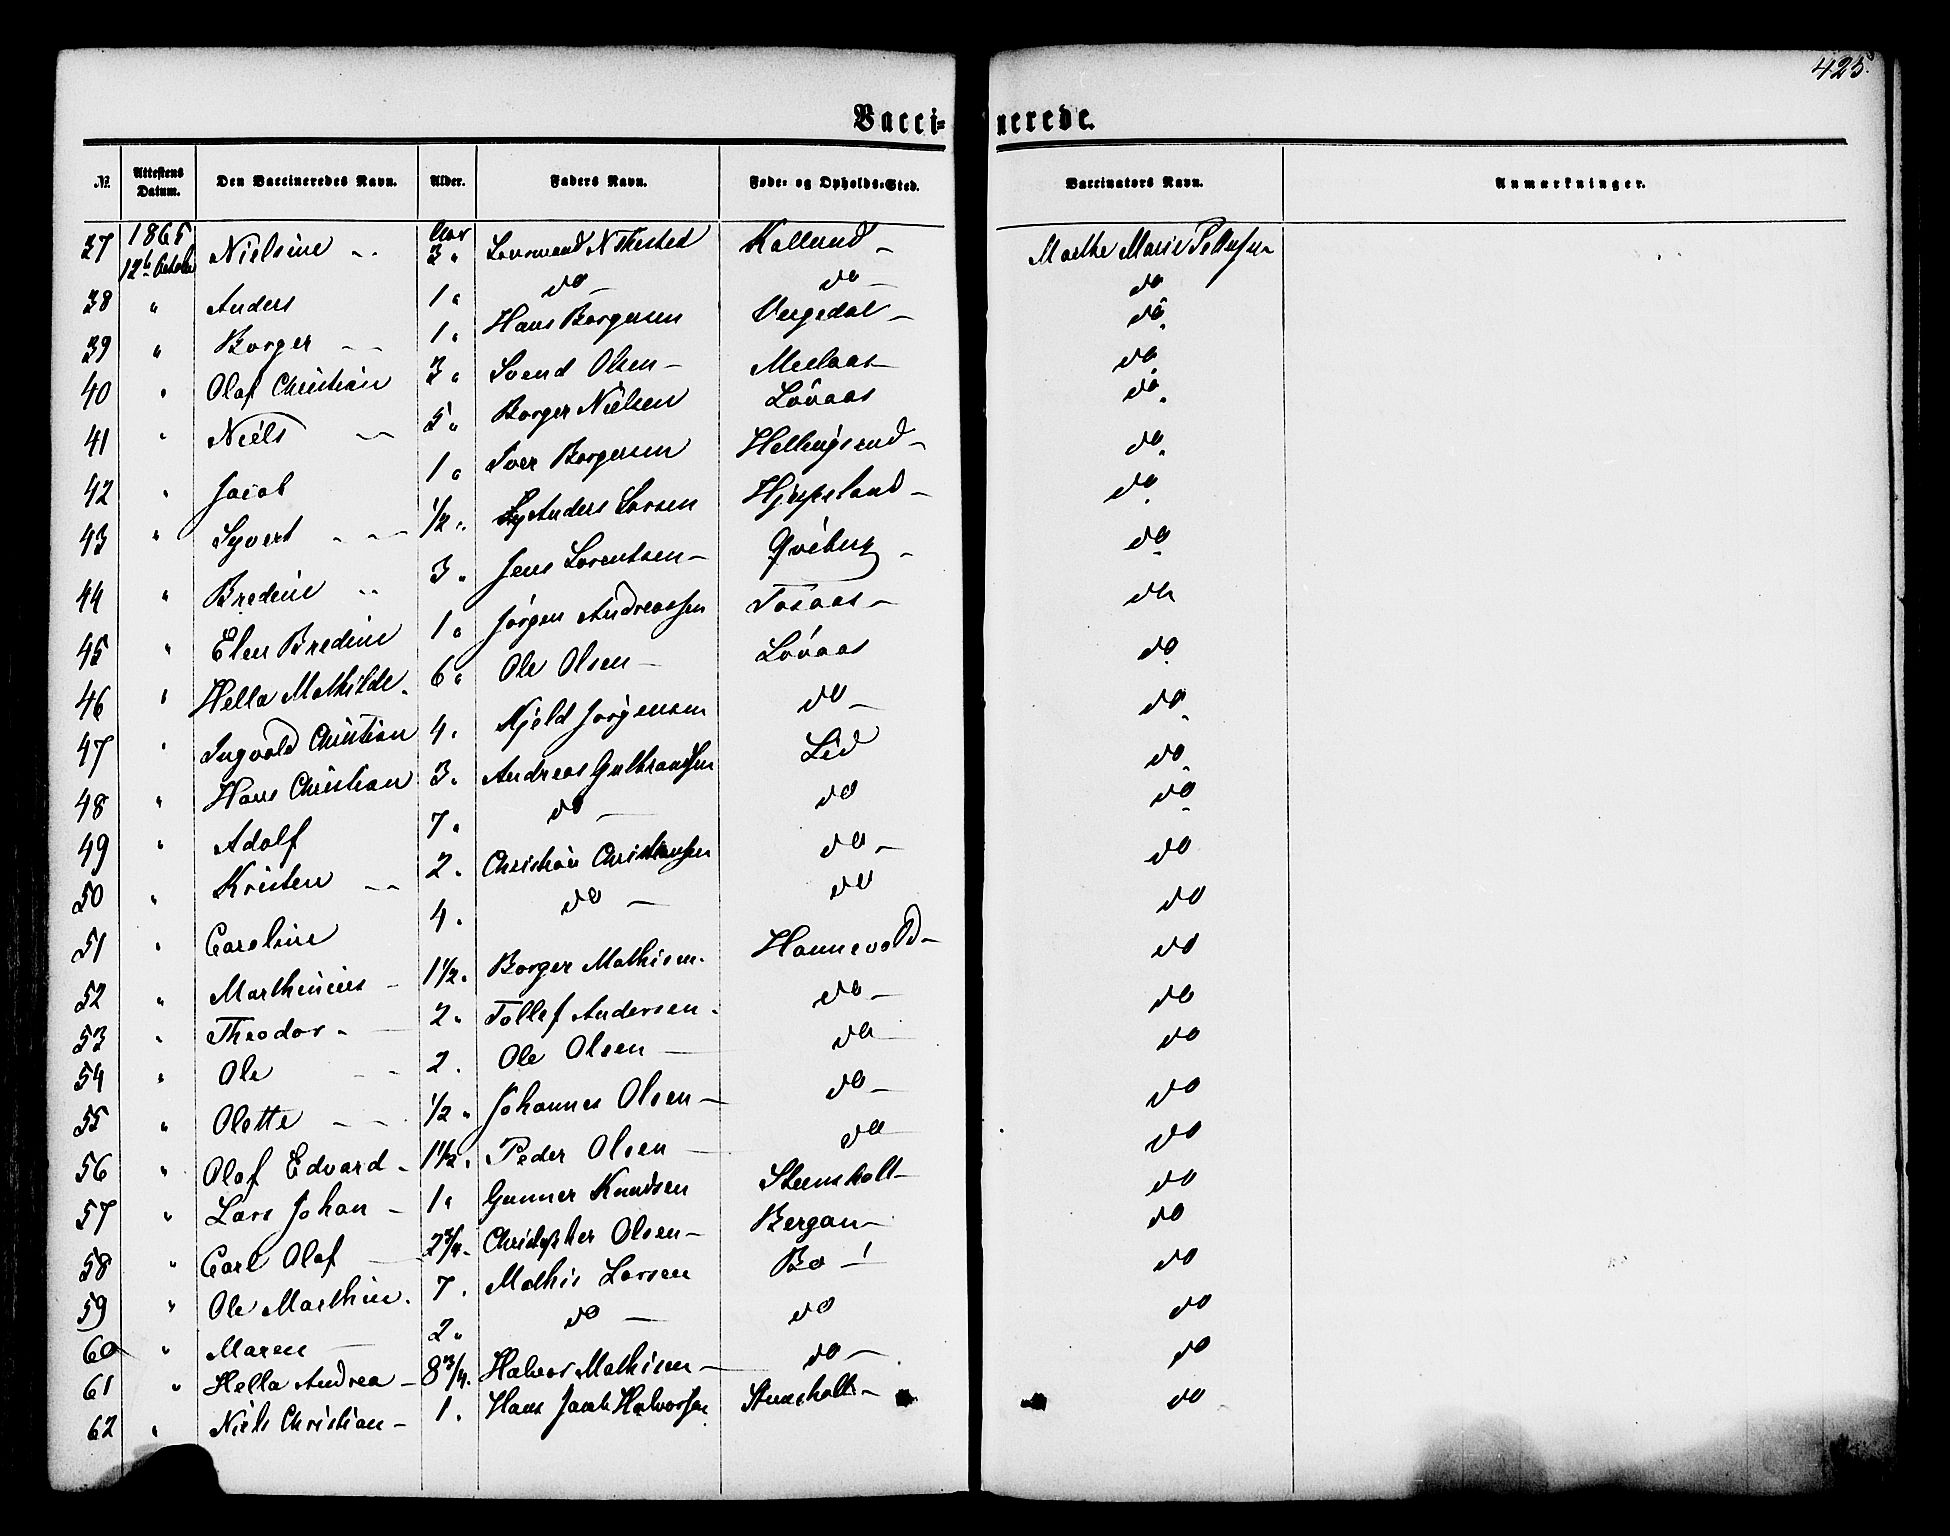 425.
Vacci- nerede.
№ Attestens Datum. Den Vaccineredes Navn. Alder. Faders Navn. Føde- og Opholds-Sted. Vaccinators Navn. Anmærkninger.
37 1865 12te October Nielsine 3 Aar Kallerud Marthe Marie Pedersen
38 " Anders 1 " do do do
39 " Borger 1 " Hans Borgersen Vergedal do
40 " Olaf Christian 3 " Svend Olsen Meelaas do
41 " Niels 5 " Borger Nielsen Løvaas do
42 " Jacob 1 " Iver Borgersen Hellingsrud do
43 " Syvert 1/2 " Anders Larsen do
44 " Bredine 3 " Jens Lorentsen Qviberg do
45 " Elen Bredine 1 " Jørgen Andreassen Tasaas do
46 " Hella Mathilde 6 " Ole Olsen Løvaas do
47 " Ingvold Christian 4 " Kjeld Jørgensen do do
48 " Hans Christian 3 " Andreas Gulbrandsen Lid do
49 " Adolf 7 " do do do
50 " Kristen 2 " Christian Christiansen do do
51 " Caroline 4 " do do do
52 " Marthinius 1 1/2 " Borger Mathisen Hannevold do
53 " Theodor 2 " Tollef Andersen do do
54 " Ole 2 " Ole Olsen do do
55 " Olette 1/2 " Johannes Olsen do do
56 " Olaf Edvard 1 1/2 " Peder Olsen do do
57 " Lars Johan 1 " Gunner Knudsen Steensholt do
58 " Carl Olaf 2 3/4 " Christopher Olsen Bergan do
59 " Ole Marthin 7 " Mathis Larsen Bø do
60 " Maren 2 " do do do
61 " Hella Andrea 8 3/4 " Halvor Mathisen do do
62 " Niels Christian 1 " Hans Jacob Halvorsen Steensholt do